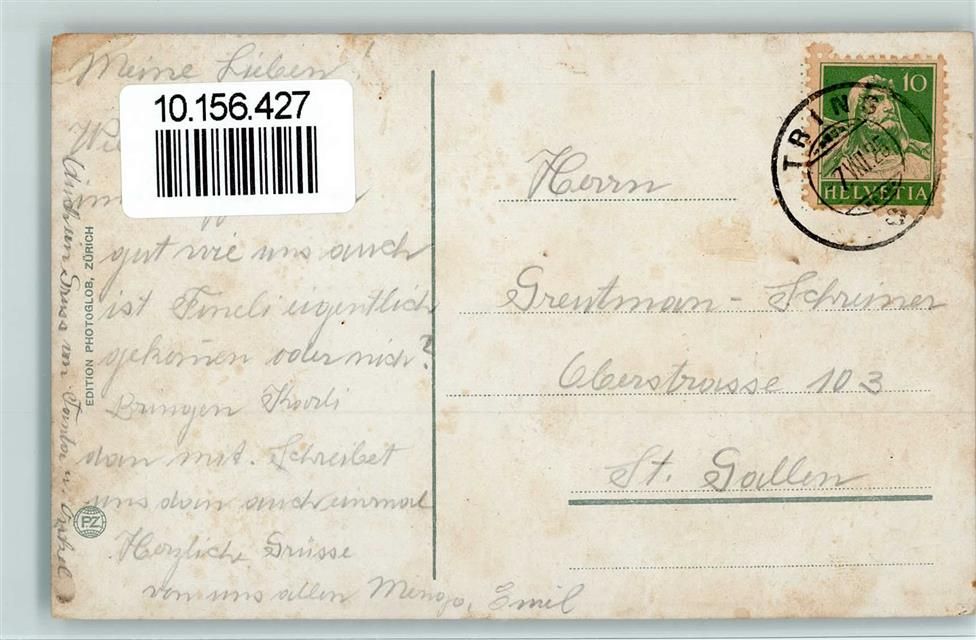 Meine Lieben!
10.156.427
gut wie uns auch
ist Fineli eigentlich
gekomen oder nich?
Bringen Karli
dan mit. Schreibet
uns dan auch einmal
Herzliche Grüsse
von uns allen Emil
Auch un Gruss
EDITION PHOTOGLOB, ZÜRICH
PZ
10
HELVETIA
TRIN
Herrn
Grentman - Schreiner
Oberstrasse 103
St. Gallen